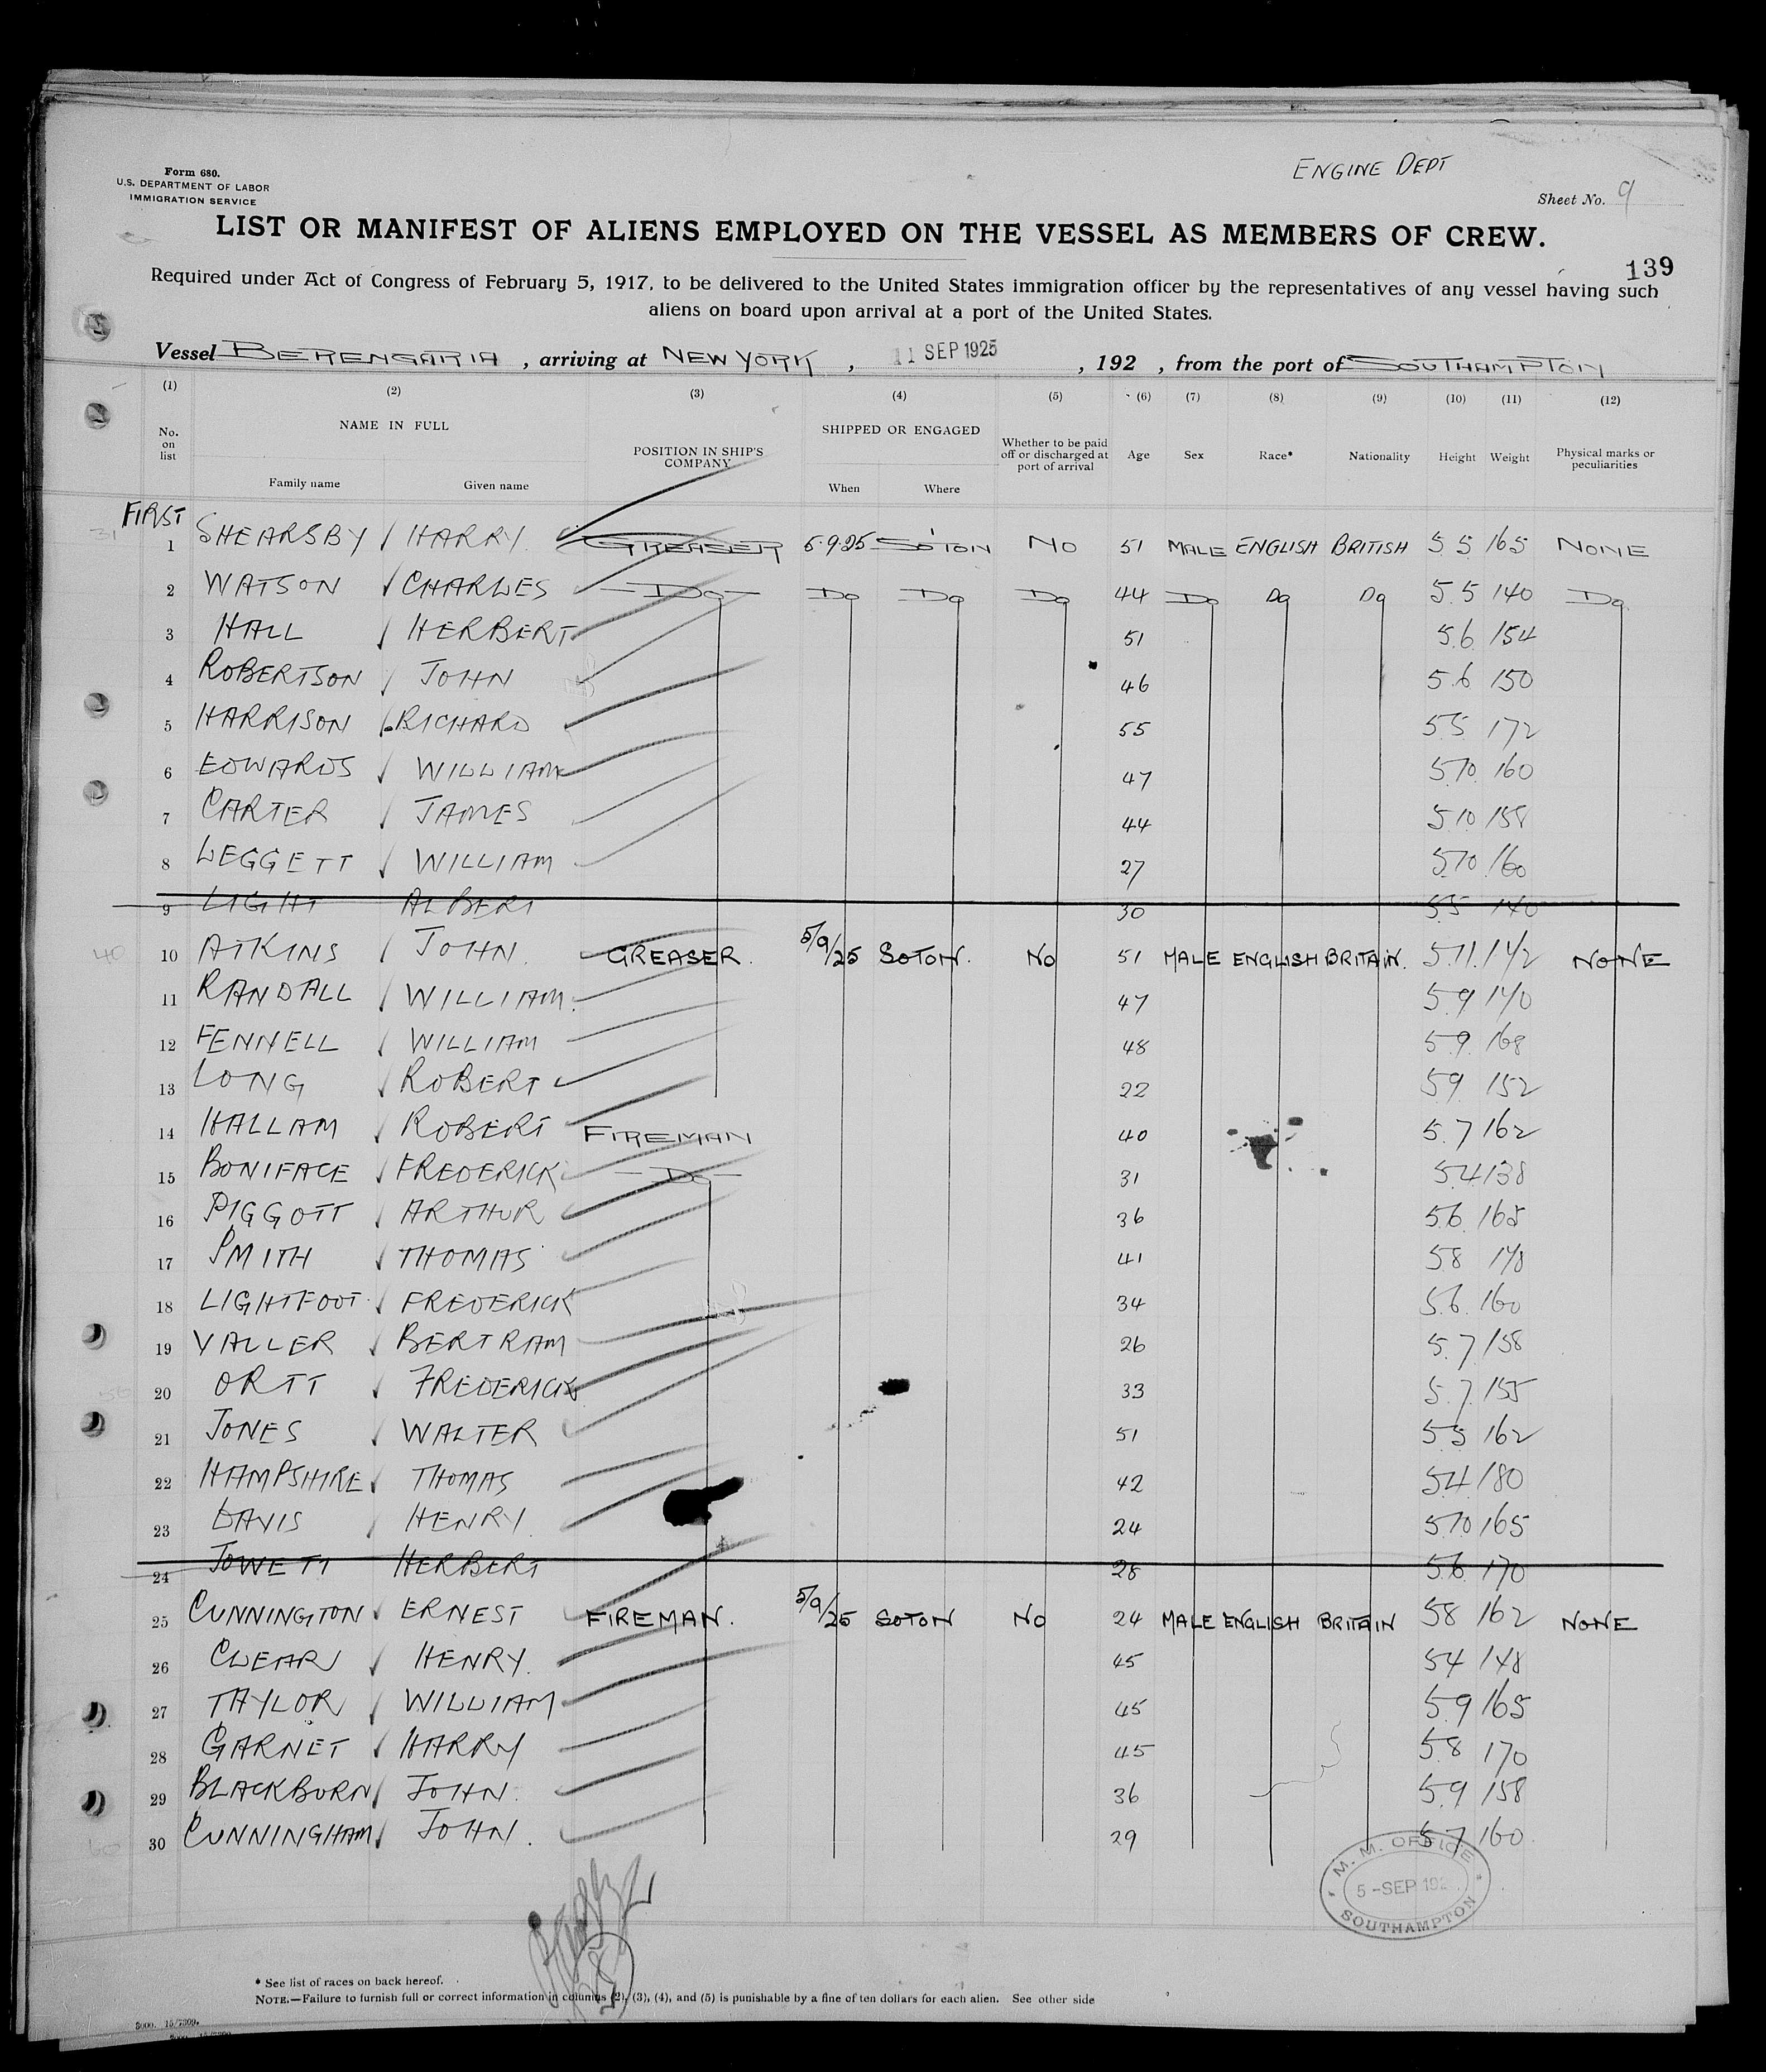 ENGINE DEPT
Form 680.
U.S. DEPARTMENT OF LABOR
IMMIGRATION SERVICE
Sheet No. 9
LIST OR MANIFEST OF ALIENS EMPLOYED ON THE VESSEL AS MEMBERS OF CREW.
139
Required under Act of Congress of February 5, 1917, to be delivered to the United States immigration officer by the representatives of any vessel having such
aliens on board upon arrival at a port of the United States.
Vessel BERENGARIA, arriving at NEW YORK, 11 SEP 1925, 192 , from the port of SOUTHAMPTON
(1) (2) (3) (4) (5) (6) (7) (8) (9) (10) (11) (12)
No. on list NAME IN FULL POSITION IN SHIP'S COMPANY SHIPPED OR ENGAGED Whether to be paid off or discharged at port of arrival Age Sex Race* Nationality Height Weight Physical marks or peculiarities
Family name Given name When Where
FIRST
1 SHEARSBY HARRY GREASER 5.9.25 SOTON NO 51 MALE ENGLISH BRITISH 5 5 165 NONE
2 WATSON CHARLES Do Do Do Do 44 Do Do Do 5.5 140 Do
3 HALL HERBERT 51 5.6 154
4 ROBERTSON JOHN 46 5.6 150
5 HARRISON RICHARD 55 5 5 172
6 EDWARDS WILLIAM 47 5.10 160
7 CARTER JAMES 44 5 10 158
8 LEGGETT WILLIAM 27 5.10 160
9 LIGHT ALBERT 30 5.5 140
10 ATKINS JOHN GREASER. 5/9/25 SOTON. NO 51 MALE ENGLISH BRITAIN. 5.11. 142 NONE
11 RANDALL WILLIAM. 47 5.9 140
12 FENNELL WILLIAM 48 5.9. 168
13 LONG ROBERT 22 5 9 152
14 HALLAM ROBERT FIREMAN 40 5.7 162
15 BONIFACE FREDERICK Do 31 5.4 138
16 PIGGOTT ARTHUR 36 5.6. 165
17 SMITH THOMAS 41 5 8 148
18 LIGHTFOOT FREDERICK 34 5.6. 160
19 VALLER BERTRAM 26 5.7 158
20 ORTT FREDERICK 33 5.7 155
21 JONES WALTER 51 5 5 162
22 HAMPSHIRE THOMAS 42 5.4 180
23 DAVIS HENRY 24 5.10 165
24 JOWETT HERBERT 28 5.6. 170
25 CUNNINGTON ERNEST FIREMAN. 5/9/25 SOTON NO 24 MALE ENGLISH BRITAIN 5 8 162 NONE
26 CLEAR HENRY. 45 5 4 148
27 TAYLOR WILLIAM 45 5.9 165
28 GARNET HARRY 45 5.8 170
29 BLACKBURN JOHN. 36 5.9 158
30 CUNNINGHAM JOHN. 29 5.7 160
M. M. OFFICE
5 - SEP 192
SOUTHAMPTON
* See list of races on back hereof.
NOTE.—Failure to furnish full or correct information in columns (2), (3), (4), and (5) is punishable by a fine of ten dollars for each alien. See other side